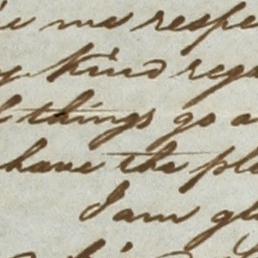 me respe
kind reg
things go a
have the ple
I am gl